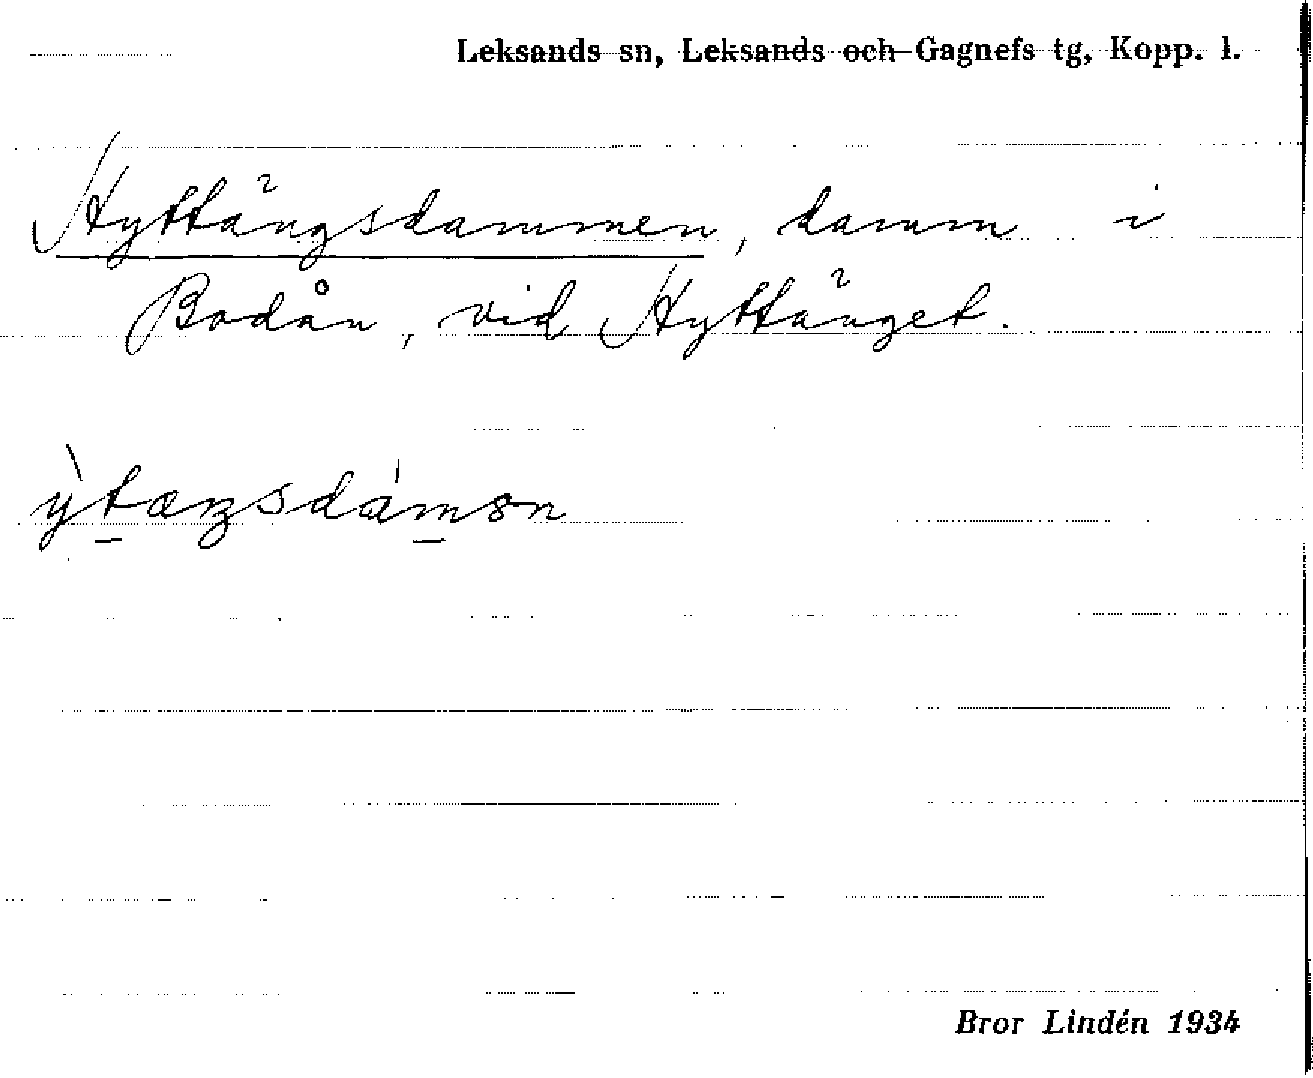 Leksands sn, Leksands och Gagnefs tg, Kopp. l.
Hyttängsdammen, damm i
Bodån, vid Hyttänget.
ỳtæŋsdámən
Bror Lindén 1934